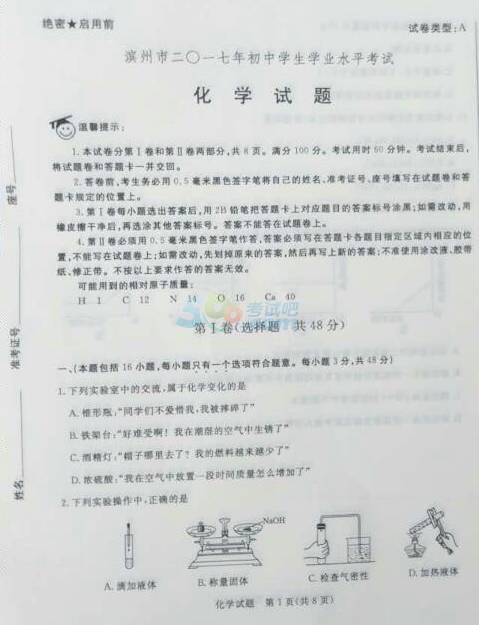 绝密★启用前
试卷类型:A
滨州市二〇一七年初中学生学业水平考试
化学试题
温馨提示:
1.本试卷分第Ⅰ卷和第Ⅱ卷两部分,共8页。满分100分。考试用时60分钟。考试结束后,
将试题卷和答题卡一并交回。
2.答卷前,考生务必用0.5毫米黑色签字笔将自己的姓名、准考证号、座号填写在试题卷和答
题卡规定的位置上。
3.第Ⅰ卷每小题选出答案后,用2B铅笔把答题卡上对应题目的答案标号涂黑;如需改动,用
橡皮擦干净后,再选涂其他答案标号。答案不能答在试题卷上。
4.第Ⅱ卷必须用0.5毫米黑色签字笔作答,答案必须写在答题卡各题目指定区域内相应的位
置,不能写在试题卷上;如需改动,先划掉原来的答案,然后再写上新的答案;不准使用涂改液、胶带
纸、修正带。不按以上要求作答的答案无效。
可能用到的相对原子质量:
H 1 C 12 N 14 O 16 Ca 40
考试吧
第Ⅰ卷(选择题 共48分)
一、(本题包括16小题,每小题只有一个选项符合题意。每小题3分,共48分)
1.下列实验室中的交流,属于化学变化的是
A.锥形瓶:“同学们不爱惜我,我被摔碎了”
B.铁架台:“好难受啊!我在潮湿的空气中生锈了”
C.酒精灯:“帽子哪里去了?我的燃料越来越少了”
D.浓硫酸:“我在空气中放置一段时间质量怎么增加了”
2.下列实验操作中,正确的是
NaOH
A.滴加液体
B.称量固体
C.检查气密性
D.加热液体
化学试题 第1页(共8页)
座号
准考证号
姓名